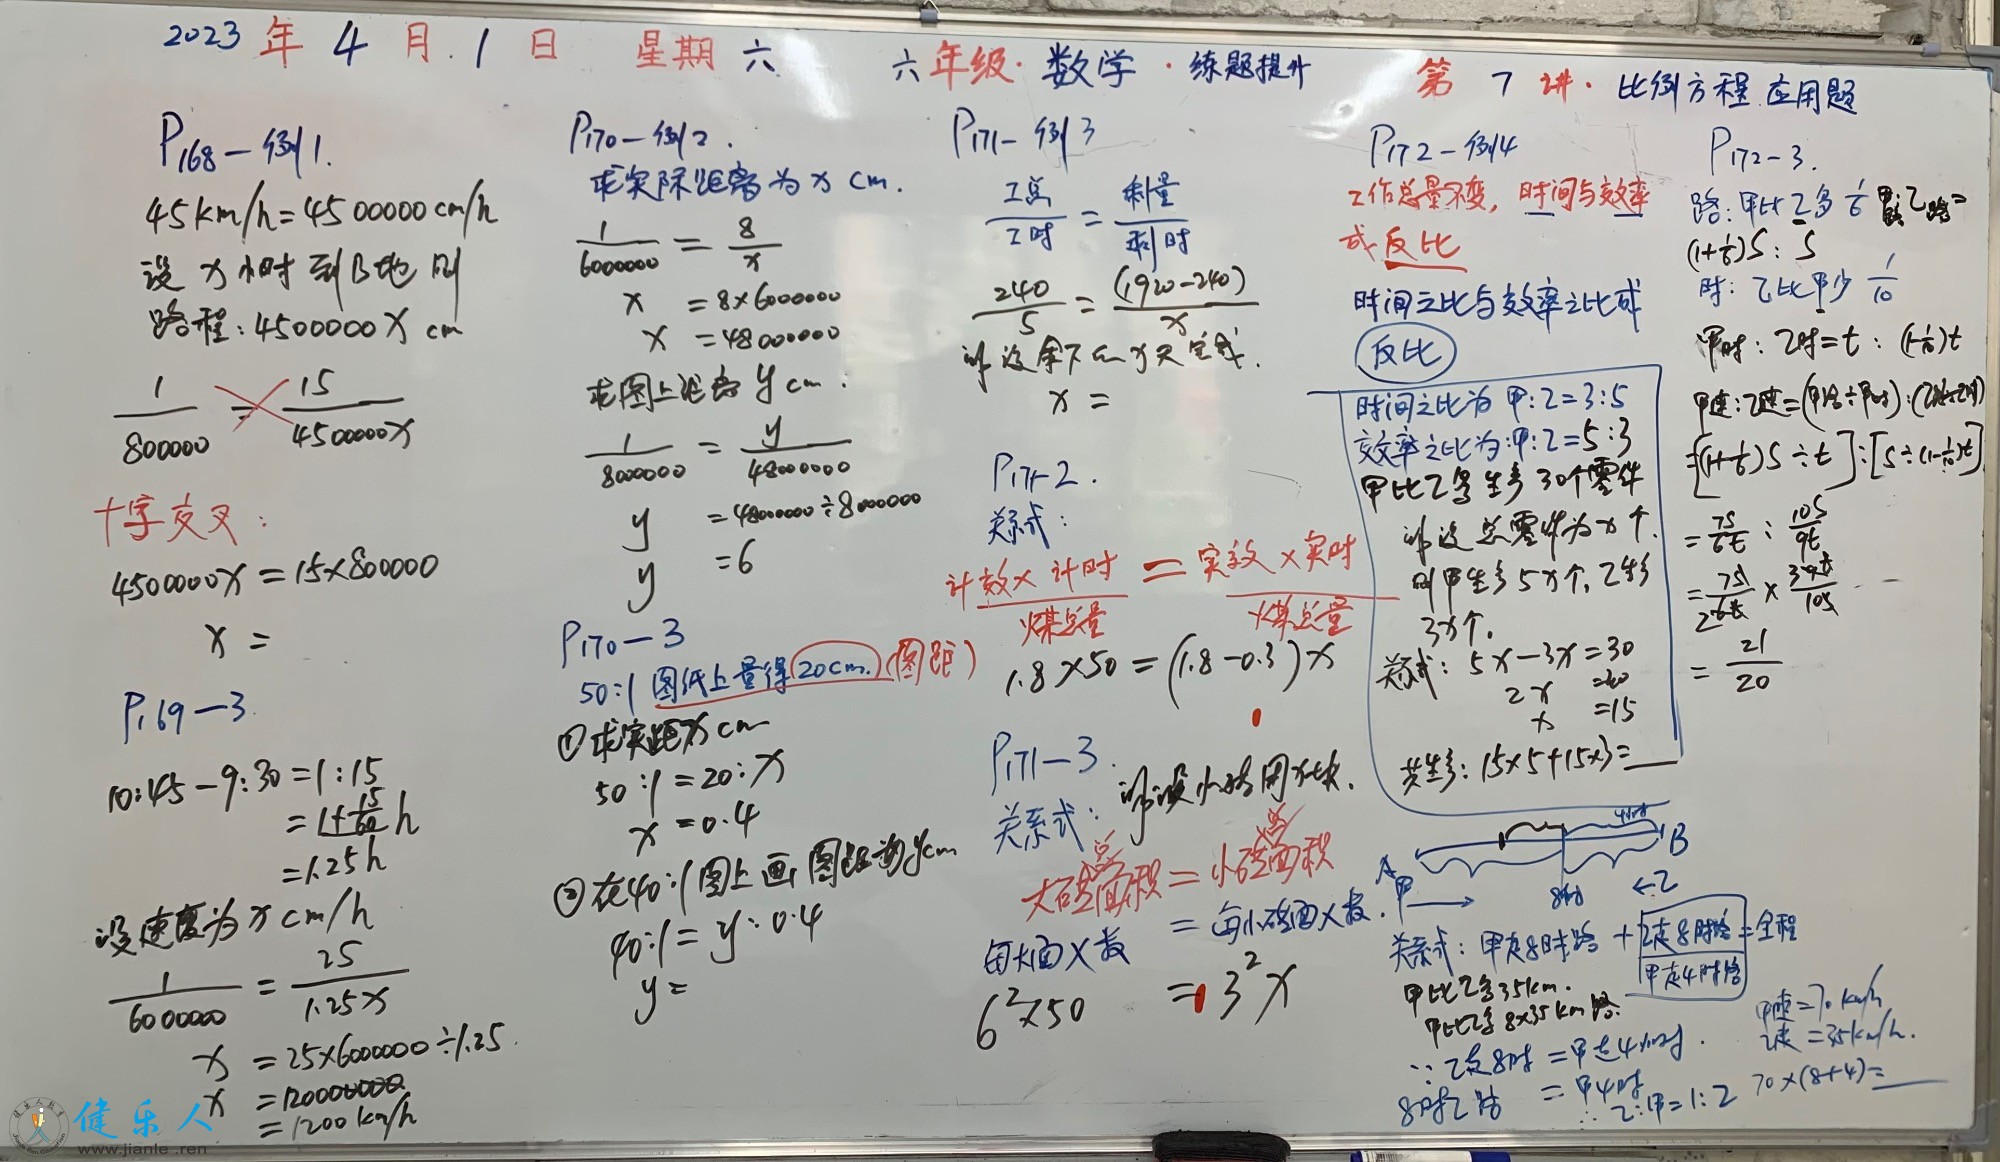 2023年4月1日 星期六 六年级·数学·练题提升 第7讲·比例方程应用题
P168-例1.
45km/h=4500000cm/h
设x小时到B地 则
路程:4500000x cm
1/800000=15/4500000x
十字交叉:
4500000x=15×800000
x=
P169-3
10:45-9:30=1:15
=1+15/60 h
=1.25h
设速度为x cm/h
1/6000000=25/1.25x
x=25×6000000÷1.25
x=120000000
=1200km/h
P170-例2.
求实际距离为x cm.
1/6000000=8/x
x=8×6000000
x=48000000
求图上距离y cm.
1/8000000=y/48000000
y=48000000÷8000000
y=6
P170-3
50:1 图纸上量得20cm.(图距)
①求实距x cm
50:1=20:x
x=0.4
②在40:1图上画,图距为y cm
40:1=y:0.4
y=
P171-例3
工总/工时=剩量/剩时
240/5=(1920-240)/x
设余下的x天完成.
x=
P171-2.
关系式:
计效×计时=实效×实时
煤总量 煤总量
1.8×50=(1.8-0.3)x
P171-3.
关系式: 设小砖用x块.
大砖总面积=小砖总面积
每大面×数=每小砖面×数.
6²×50=3²x
P172-例4
工作总量不变,时间与效率
成反比
时间之比与效率之比成
反比
时间之比为 甲:乙=3:5
效率之比为:甲:乙=5:3
甲比乙多生产30个零件
设总零件为x个.
则甲生产5x个,乙生产
3x个.
关系式:5x-3x=30
2x=30
x=15
共生产:15×5+15×3=
A B
甲 8时 ←乙
关系式:甲走8时路+乙走8时路=全程
甲走4时路
甲比乙多35km.
甲比乙多8×35km路.
∵乙走8时=甲走4小时.
8时乙路=甲4时
∴乙:甲=1:2
甲速=70km/h
乙速=35km/h.
70×(8+4)=
P172-3.
路:甲比乙多1/6 甲路:乙路=
(1+1/6)S:S
时:乙比甲少1/10
甲时:乙时=t:(1-1/10)t
甲速:乙速=(甲路÷甲时):(乙路÷乙时)
=[(1+1/6)S÷t]:[S÷(1-1/10)t]
=7S/6t:10S/9t
=7S/6t×9t/10S
=21/20
健乐人
www.jianle.ren